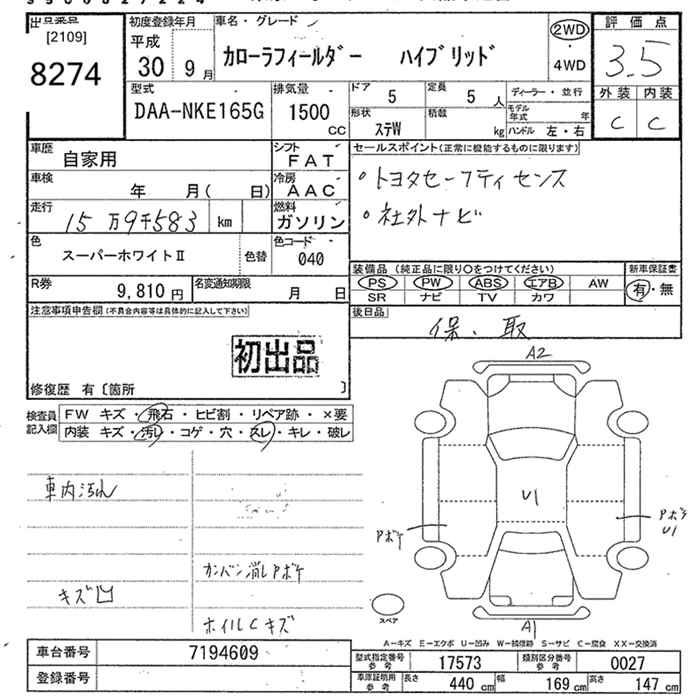 出品票
[2109]
8274
初度登録年月
平成
30 9月
車名・グレード
カローラフィールダー ハイブリッド
2WD
4WD
評価点
3.5
外装 内装
C C
型式
DAA-NKE165G
排気量
1500
CC
ドア 5
定員 5 人
形状 ステW
積載 kg
ディーラー・並行
モデル年式 年
ハンドル 左・右
車歴
自家用
シフト
FAT
車検
年 月( 日)
冷房
AAC
走行
15万9千583 km
燃料
ガソリン
色
スーパーホワイトⅡ
色替
色コード
040
R券
9,810円
名変通知期限
月 日
セールスポイント(正常に機能するものに限ります)
・トヨタセーフティセンス
・社外ナビ
装備品(純正品に限り○をつけてください)
PS PW ABS エアB AW
SR ナビ TV カワ
新車保証書
有・無
後日品
保、取
注意事項申告欄(不具合内容等は具体的に記入して下さい)
初出品
修復歴 有〔箇所 〕
検査員記入欄
FW キズ・飛石・ヒビ割・リペア跡・×要
内装 キズ・汚レ・コゲ・穴・スレ・キレ・破レ
車内汚れ
カンバン消しPボケ
キズ凹
ホイルCキズ
A2
U1
Pボケ
Pボケ
U1
A1
スペア
A-キズ E-エクボ U-凹み W-補修跡 S-サビ C-腐食 XX-交換済
車台番号
7194609
登録番号
型式指定番号参考
17573
類別区分番号参考
0027
車庫証明用参考
長さ 440 cm
幅 169 cm
高さ 147 cm